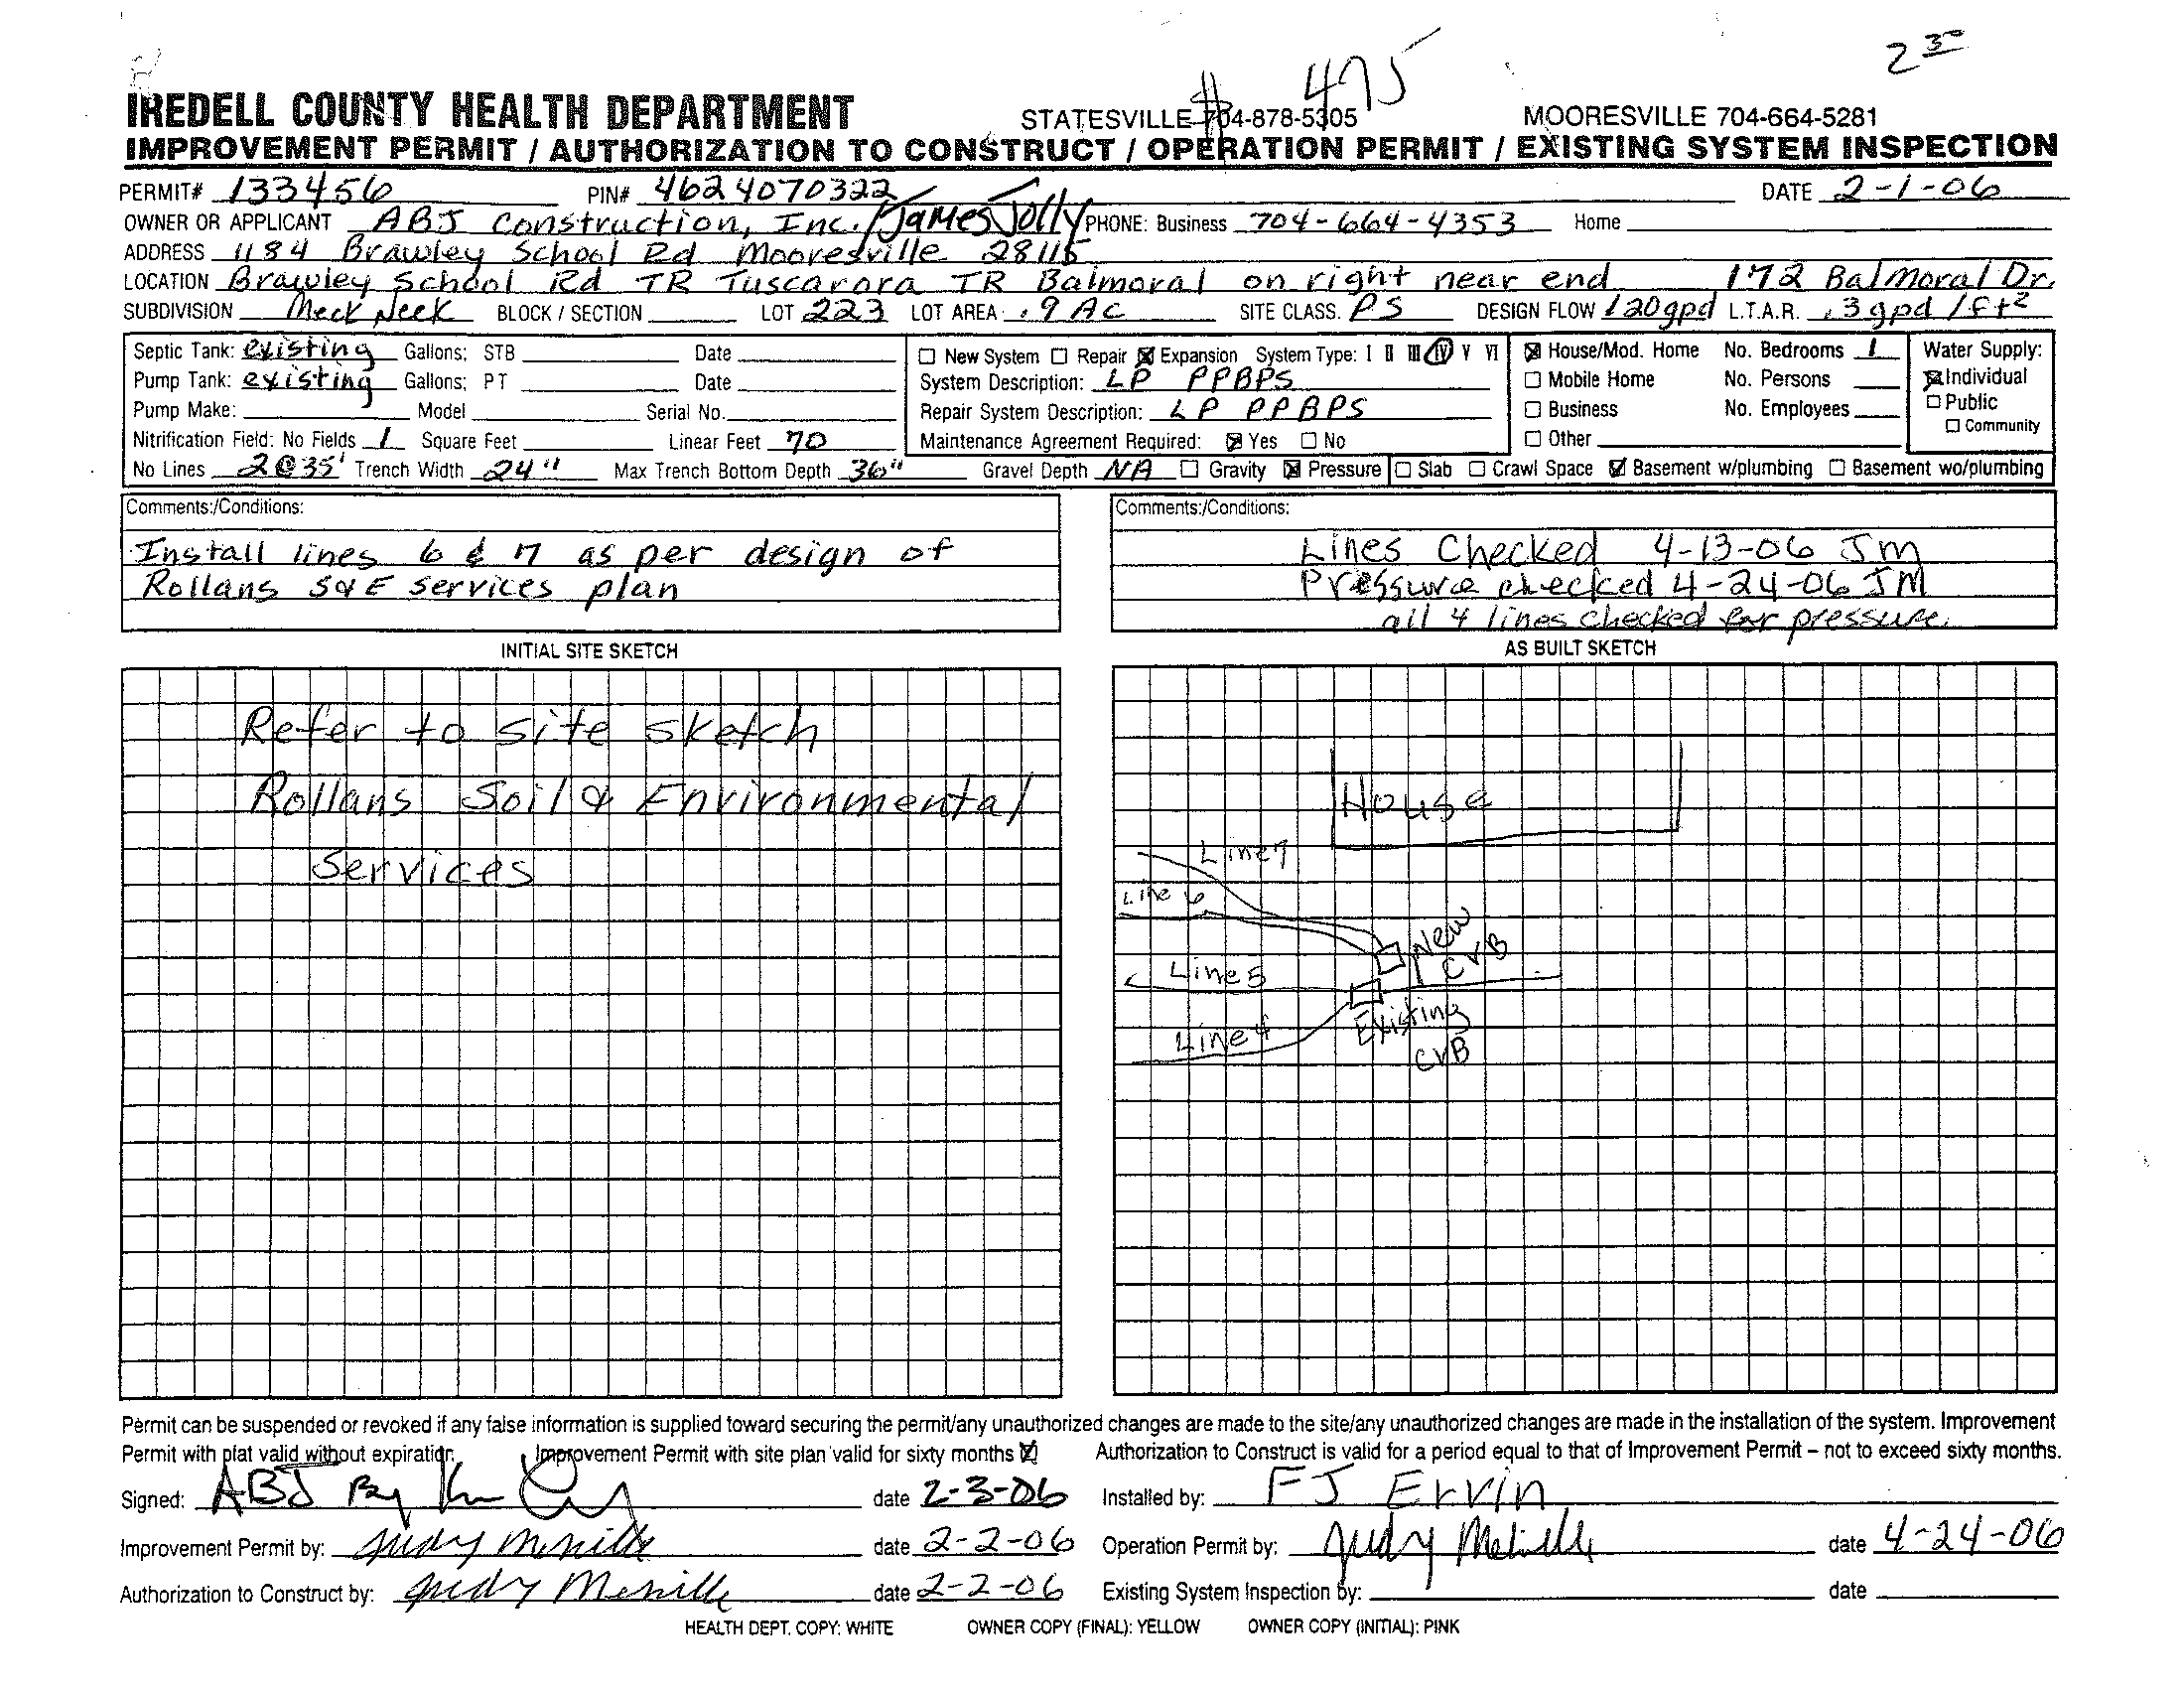 2 30
$ 475
IREDELL COUNTY HEALTH DEPARTMENT STATESVILLE 704-878-5305 MOORESVILLE 704-664-5281
IMPROVEMENT PERMIT / AUTHORIZATION TO CONSTRUCT / OPERATION PERMIT / EXISTING SYSTEM INSPECTION
PERMIT# 133456 PIN# 4624070322 DATE 2-1-06
OWNER OR APPLICANT ABJ Construction, Inc./James Jolly PHONE: Business 704-664-4353 Home
ADDRESS 1184 Brawley School Rd Mooresville 28115
LOCATION Brawley School Rd TR Tuscarora TR Balmoral on right near end 172 Balmoral Dr.
SUBDIVISION Meck Neck BLOCK / SECTION LOT 223 LOT AREA .9 Ac SITE CLASS. PS DESIGN FLOW 120gpd L.T.A.R. .3 gpd /ft2
Septic Tank: existing Gallons: STB Date
Pump Tank: existing Gallons: PT Date
Pump Make: Model Serial No.
Nitrification Field: No Fields 1 Square Feet Linear Feet 70
No Lines 2@35' Trench Width 24" Max Trench Bottom Depth 36" Gravel Depth NA Gravity Pressure Slab Crawl Space Basement w/plumbing Basement wo/plumbing
New System Repair Expansion System Type: I II III IV V VI
System Description: LP PPBPS
Repair System Description: LP PPBPS
Maintenance Agreement Required: Yes No
House/Mod. Home No. Bedrooms 1
Mobile Home No. Persons
Business No. Employees
Other
Water Supply:
Individual
Public
Community
Comments:/Conditions:
Install lines 6 & 7 as per design of
Rollans S&E services plan
Comments:/Conditions:
Lines Checked 4-13-06 JM
Pressure checked 4-24-06 JM
all 4 lines checked for pressure.
INITIAL SITE SKETCH
Refer to site sketch
Rollans Soil & Environmental
Services
AS BUILT SKETCH
House
Line 7
Line 6
New
CVB
Line 5
Existing
CVB
Line 4
Permit can be suspended or revoked if any false information is supplied toward securing the permit/any unauthorized changes are made to the site/any unauthorized changes are made in the installation of the system. Improvement
Permit with plat valid without expiration. Improvement Permit with site plan valid for sixty months Authorization to Construct is valid for a period equal to that of Improvement Permit – not to exceed sixty months.
Signed: ABJ By date 2-3-06 Installed by: FJ Ervin
Improvement Permit by: Judy date 2-2-06 Operation Permit by: Judy date 4-24-06
Authorization to Construct by: Judy date 2-2-06 Existing System Inspection by: date
HEALTH DEPT. COPY: WHITE OWNER COPY (FINAL): YELLOW OWNER COPY (INITIAL): PINK